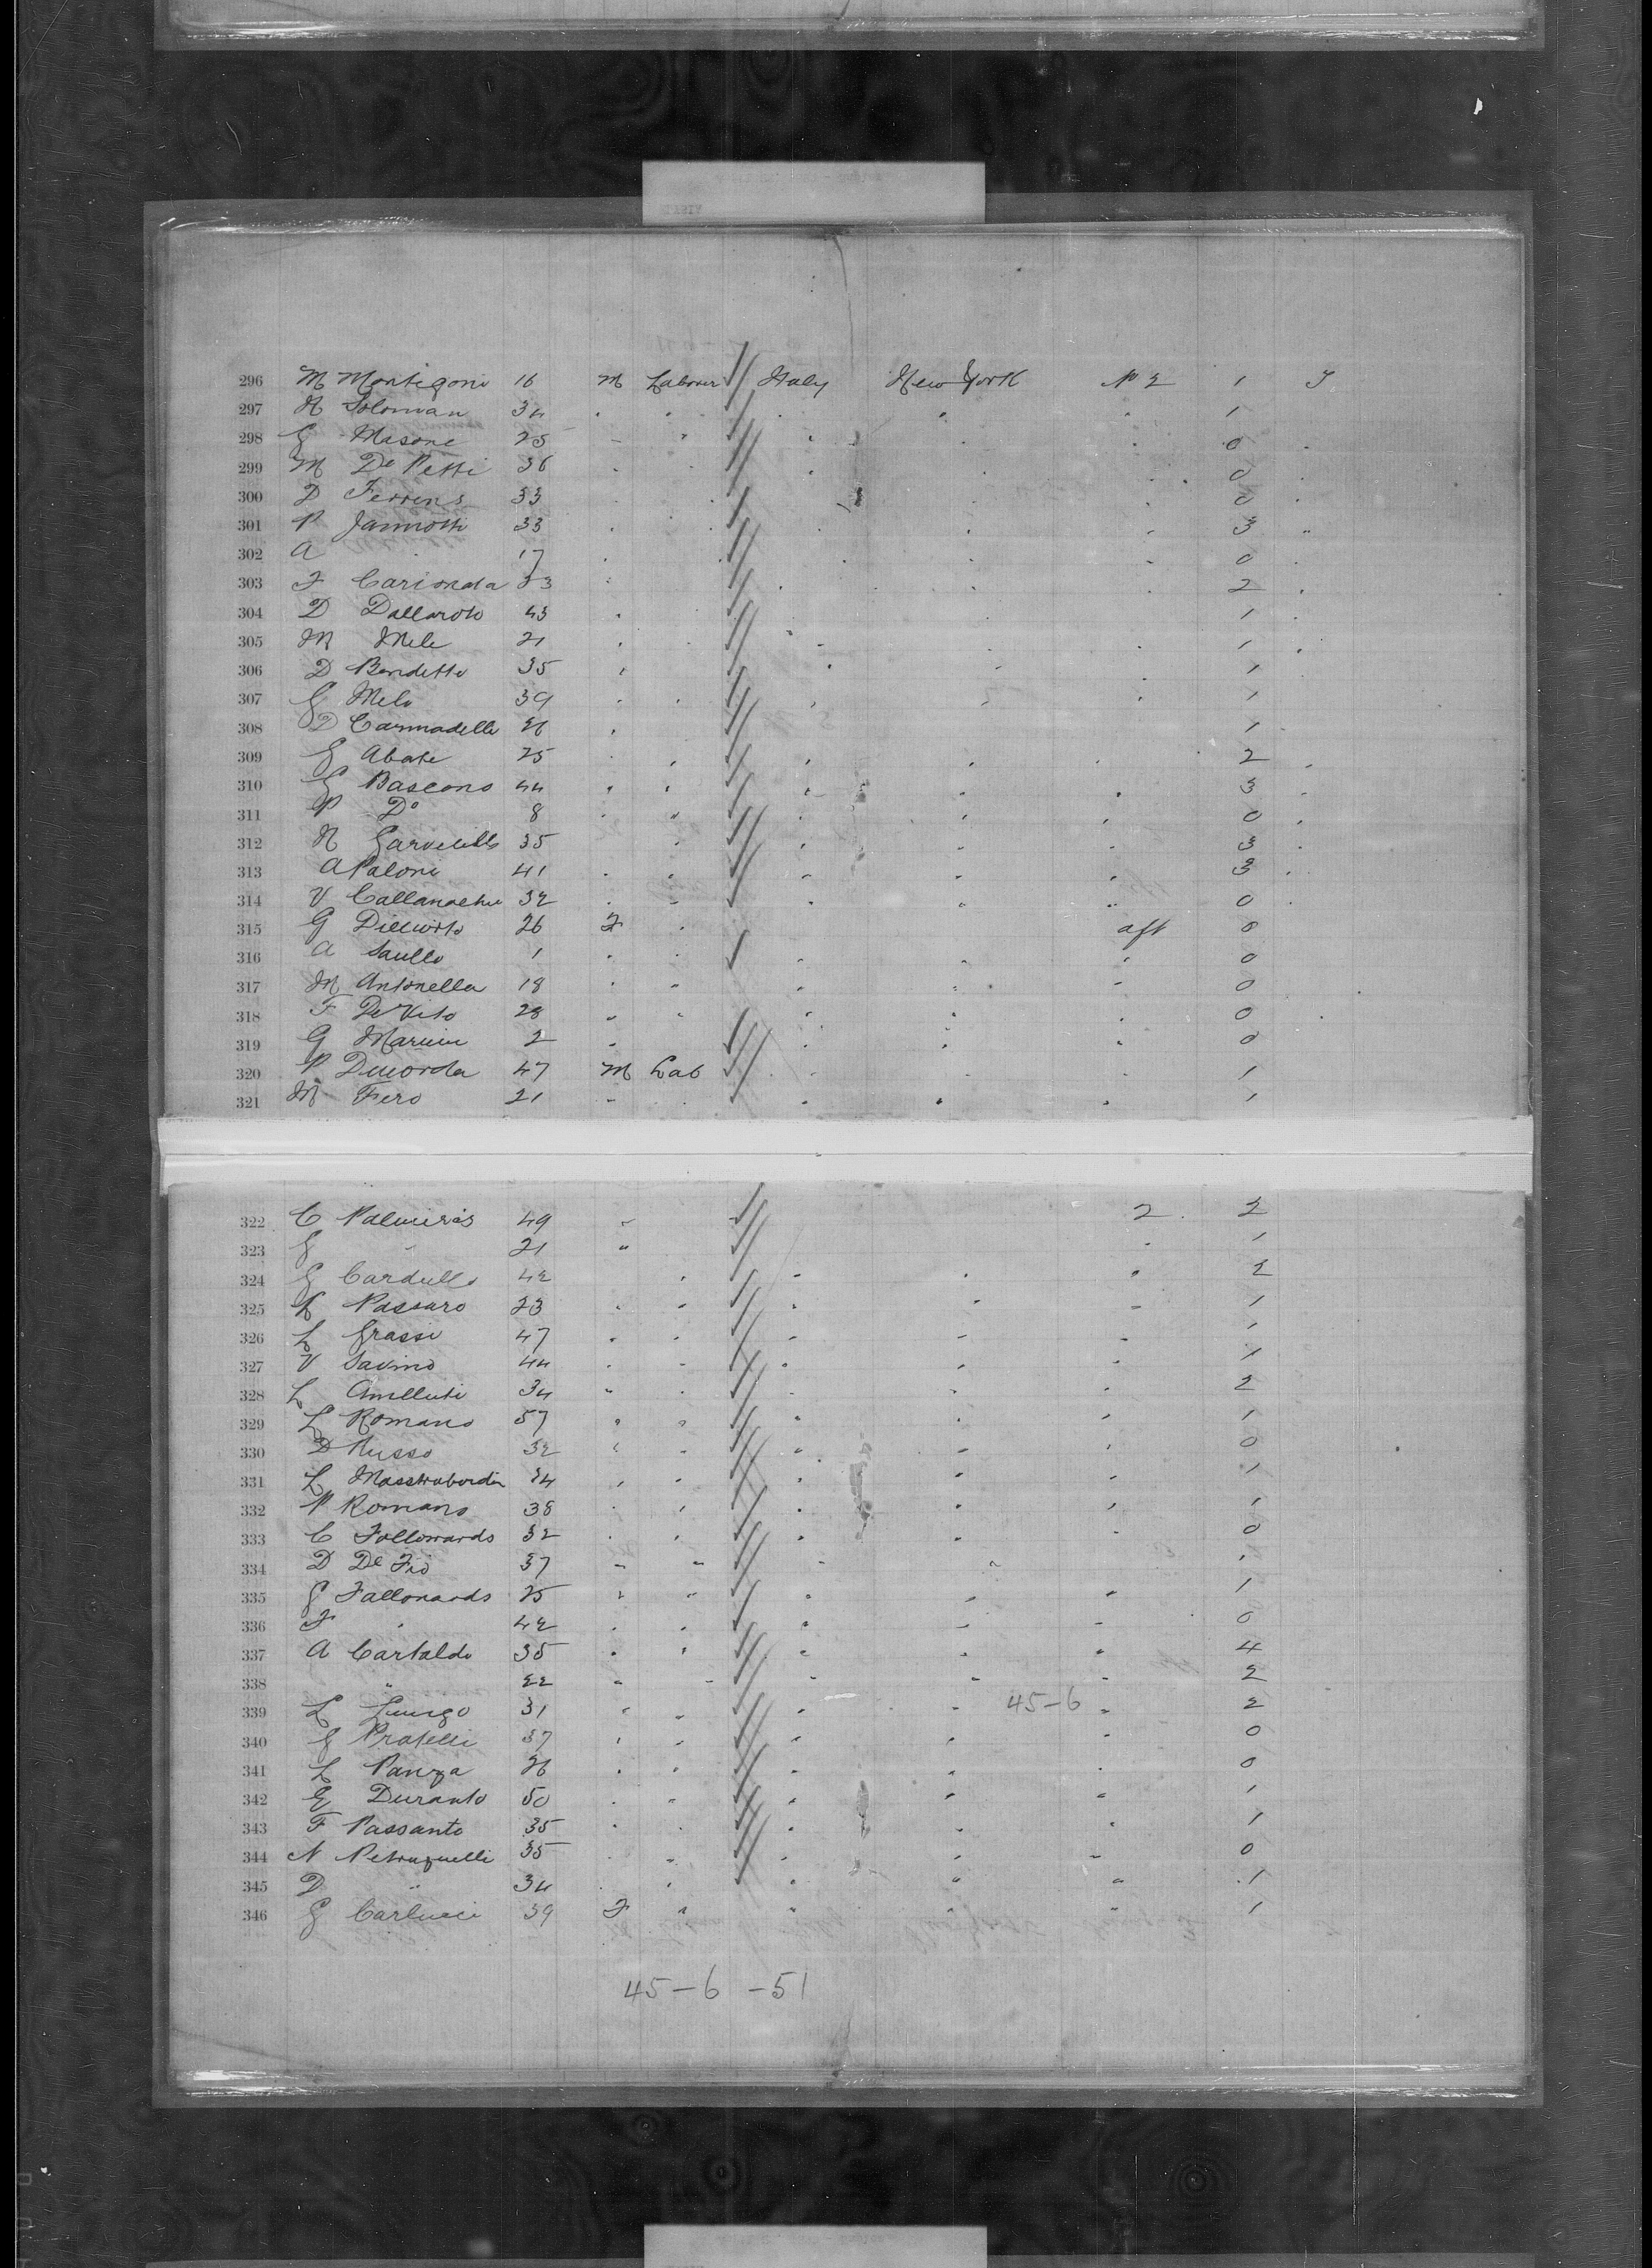 296 M Montigoni 16 M Laborer Italy New York No 2 1 T
297 N Soloman 34 " " " " " 1
298 G Masone 25 " " " " " 0 "
299 M De Petti 36 " " " " 0 "
300 D Ferrins 33 " " 0 "
301 P Jannotti 33 " " " " " 3 "
302 A " 17 " " " " " 0 "
303 F Carionda 33 " " " " 2 "
304 D Dallaroto 43 " " " " 1 "
305 M Mele 21 " " " " " 1 "
306 D Bendetto 35 " " " " 1
307 G Melo 39 " " " " " 1
308 D Carmadella 26 " 1
309 G Abate 25 " " " " " 2 "
310 G Bascono 44 " " " " " 3 "
311 P Do 8 " " " " " 0 "
312 N 35 " " " " 3 "
313 A Paloni 41 " " " " " 3 "
314 V 32 " " " " 0 "
315 G 26 F " aft 0
316 A Saullo 1 " " " " " 0
317 M Antonella 18 " " " " " 0
318 F De Vito 28 " " " " " 0 "
319 G 2 " " " " 0
320 P 47 M Lab " " " 1
321 M Fero 21 " " " " " 1
322 C 49 " " 2 2
323 G " 21 " " 1
324 G Cardullo 42 " " " " 2
325 Passaro 23 " " " " " 1
326 L Grassi 47 " " " " " 1
327 V Savino 44 " " " " " 1
328 L Amelluti 34 " " " " " 2
329 L Romano 57 " " " " " 1
330 D Russo 32 " " " " " 0
331 L 34 " " " " 1
332 P Romano 38 " " " " " 1
333 C Follonards 32 " " " " " 0
334 D De Fio 37 " " " " 1
335 G Fallonards 25 " " " " " 1
336 F " 42 " " " " " 0
337 A Cartaldo 35 " " " " " 4
338 " 22 " " " " " 2
339 L 31 " " " " 45-6 " 2
340 G Pratelli 37 " " " " " 0
341 L Panza 26 " " " " " 0
342 G Duranto 50 " " " " " 1
343 F Passanto 35 " " " " " 1
344 N Petruzuelli 35 " " " " " 0
345 D " 34 " " " " 1
346 G Carlucci 39 F " " " " 1
45-6 -51